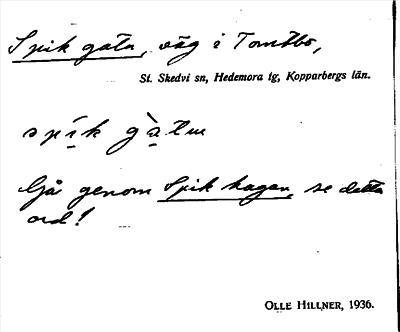 Spik gatan, väg i Tomtbo,
St. Skedvi sn, Hedemora tg, Kopparbergs län.
spik gatu
Går genom Spik hagen, se detta
ord!
OLLE HILLNER, 1936.